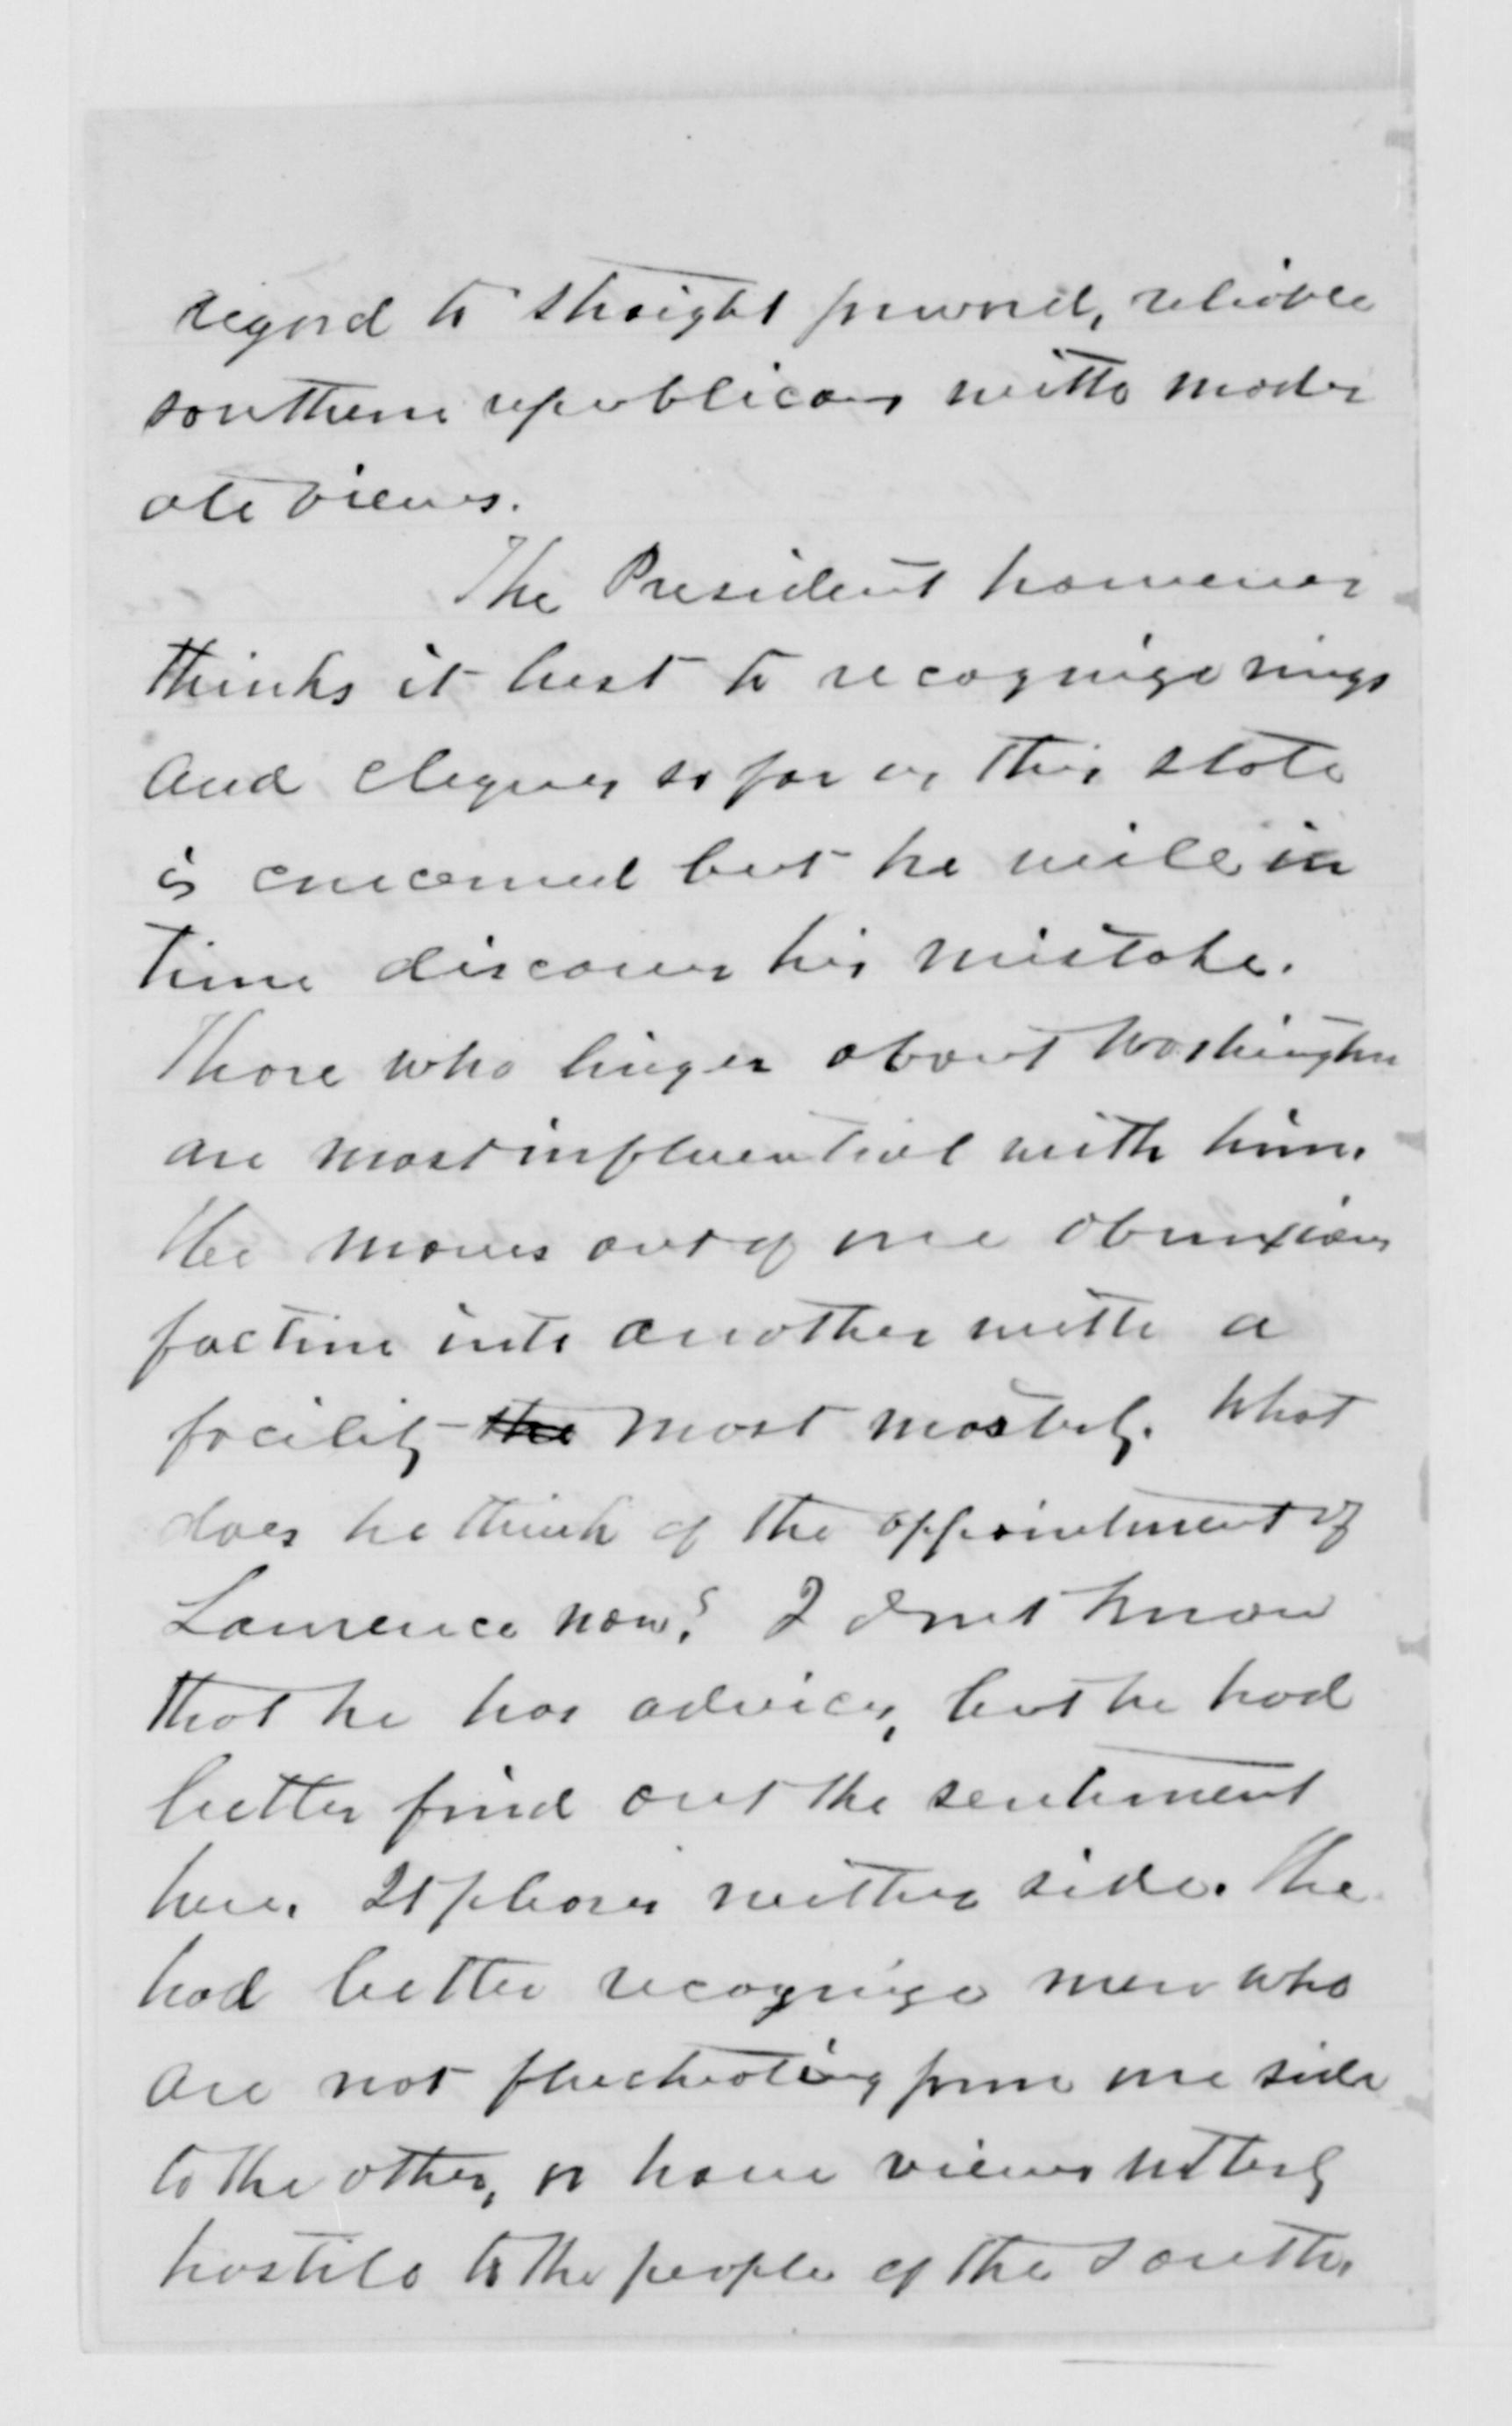 regard to straight forward, reliable
southern republicans with moder
ate views.
The President however
thinks it best to recognize rings
and cliques so far as this state
is concerned but he will in
time discover his mistake.
Those who linger about Washington
are most influential with him.
He moves out of one obnoxious
faction into another with a
facility the most masterly. What
does he think of the appointment of
Lawrence now? I do not know
that he has advices, but he had
better find out the sentiment
here. It pleases neither side. He
had better recognize men who
are not fluctuating from one side
to the other, or have views utterly
hostile to the people of the South.